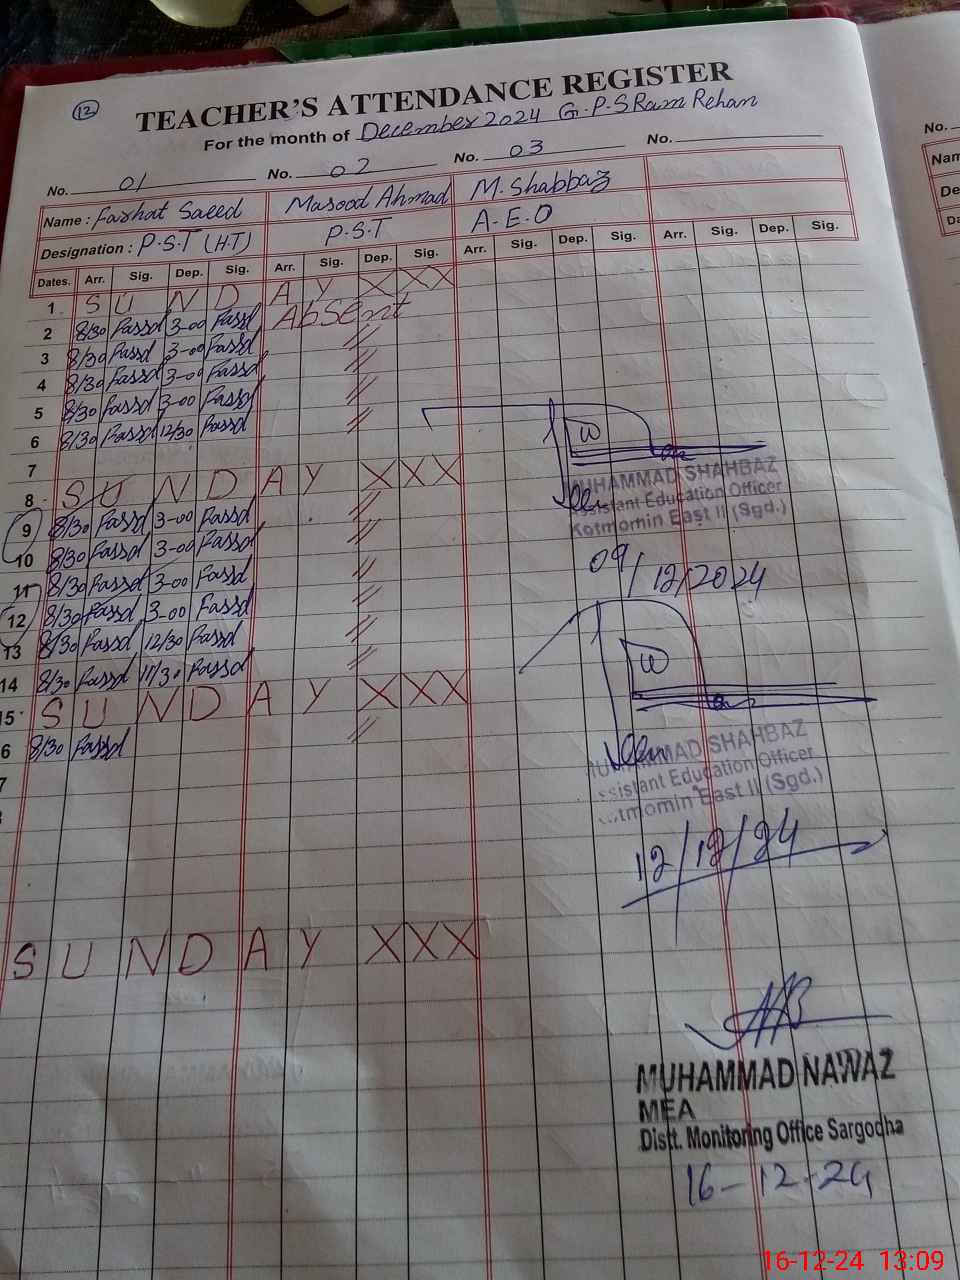 12
TEACHER'S ATTENDANCE REGISTER
For the month of December 2024 G.P.S Ram Rehan
No. 01 No. 02 No. 03 No. No.
Name : Farhat Saeed Masood Ahmad M. Shabbaz Nam
Designation : P.S.T (H.T) P.S.T A.E.O De
Dates. Arr. Sig. Dep. Sig. Arr. Sig. Dep. Sig. Arr. Sig. Dep. Sig. Arr. Sig. Dep. Sig. Da
1 S U N D A Y X X X
2 8/30 3-00 Absent
3 8/30 3-00 //
4 8/30 3-00 //
5 8/30 3-00 //
6 8/30 12/30 //
7
8 S U N D A Y X X X
9 8/30 3-00 //
10 8/30 3-00 //
11 8/30 3-00 //
12 8/30 3-00 //
13 8/30 12/30 //
14 8/30 11/30 //
15 S U N D A Y X X X
6 8/30 //
7
S U N D A Y X X X
W
MUHAMMAD SHAHBAZ
Assistant Education Officer
Kotmomin East II (Sgd.)
09/12/2024
W
MUHAMMAD SHAHBAZ
ssistant Education Officer
tmomin East II (Sgd.)
12/12/24
MUHAMMAD NAWAZ
MEA
Distt. Monitoring Office Sargodha
16-12-24
16-12-24 13:09